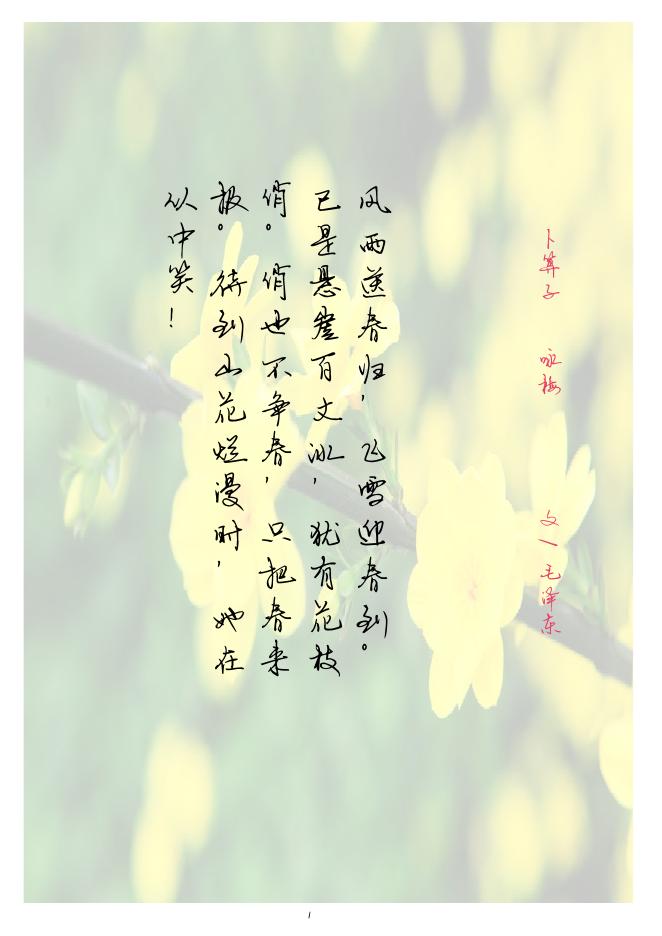 卜算子 咏梅 文/毛泽东
风雨送春归，飞雪迎春到。
已是悬崖百丈冰，犹有花枝
俏。俏也不争春，只把春来
报。待到山花烂漫时，她在
丛中笑！
1